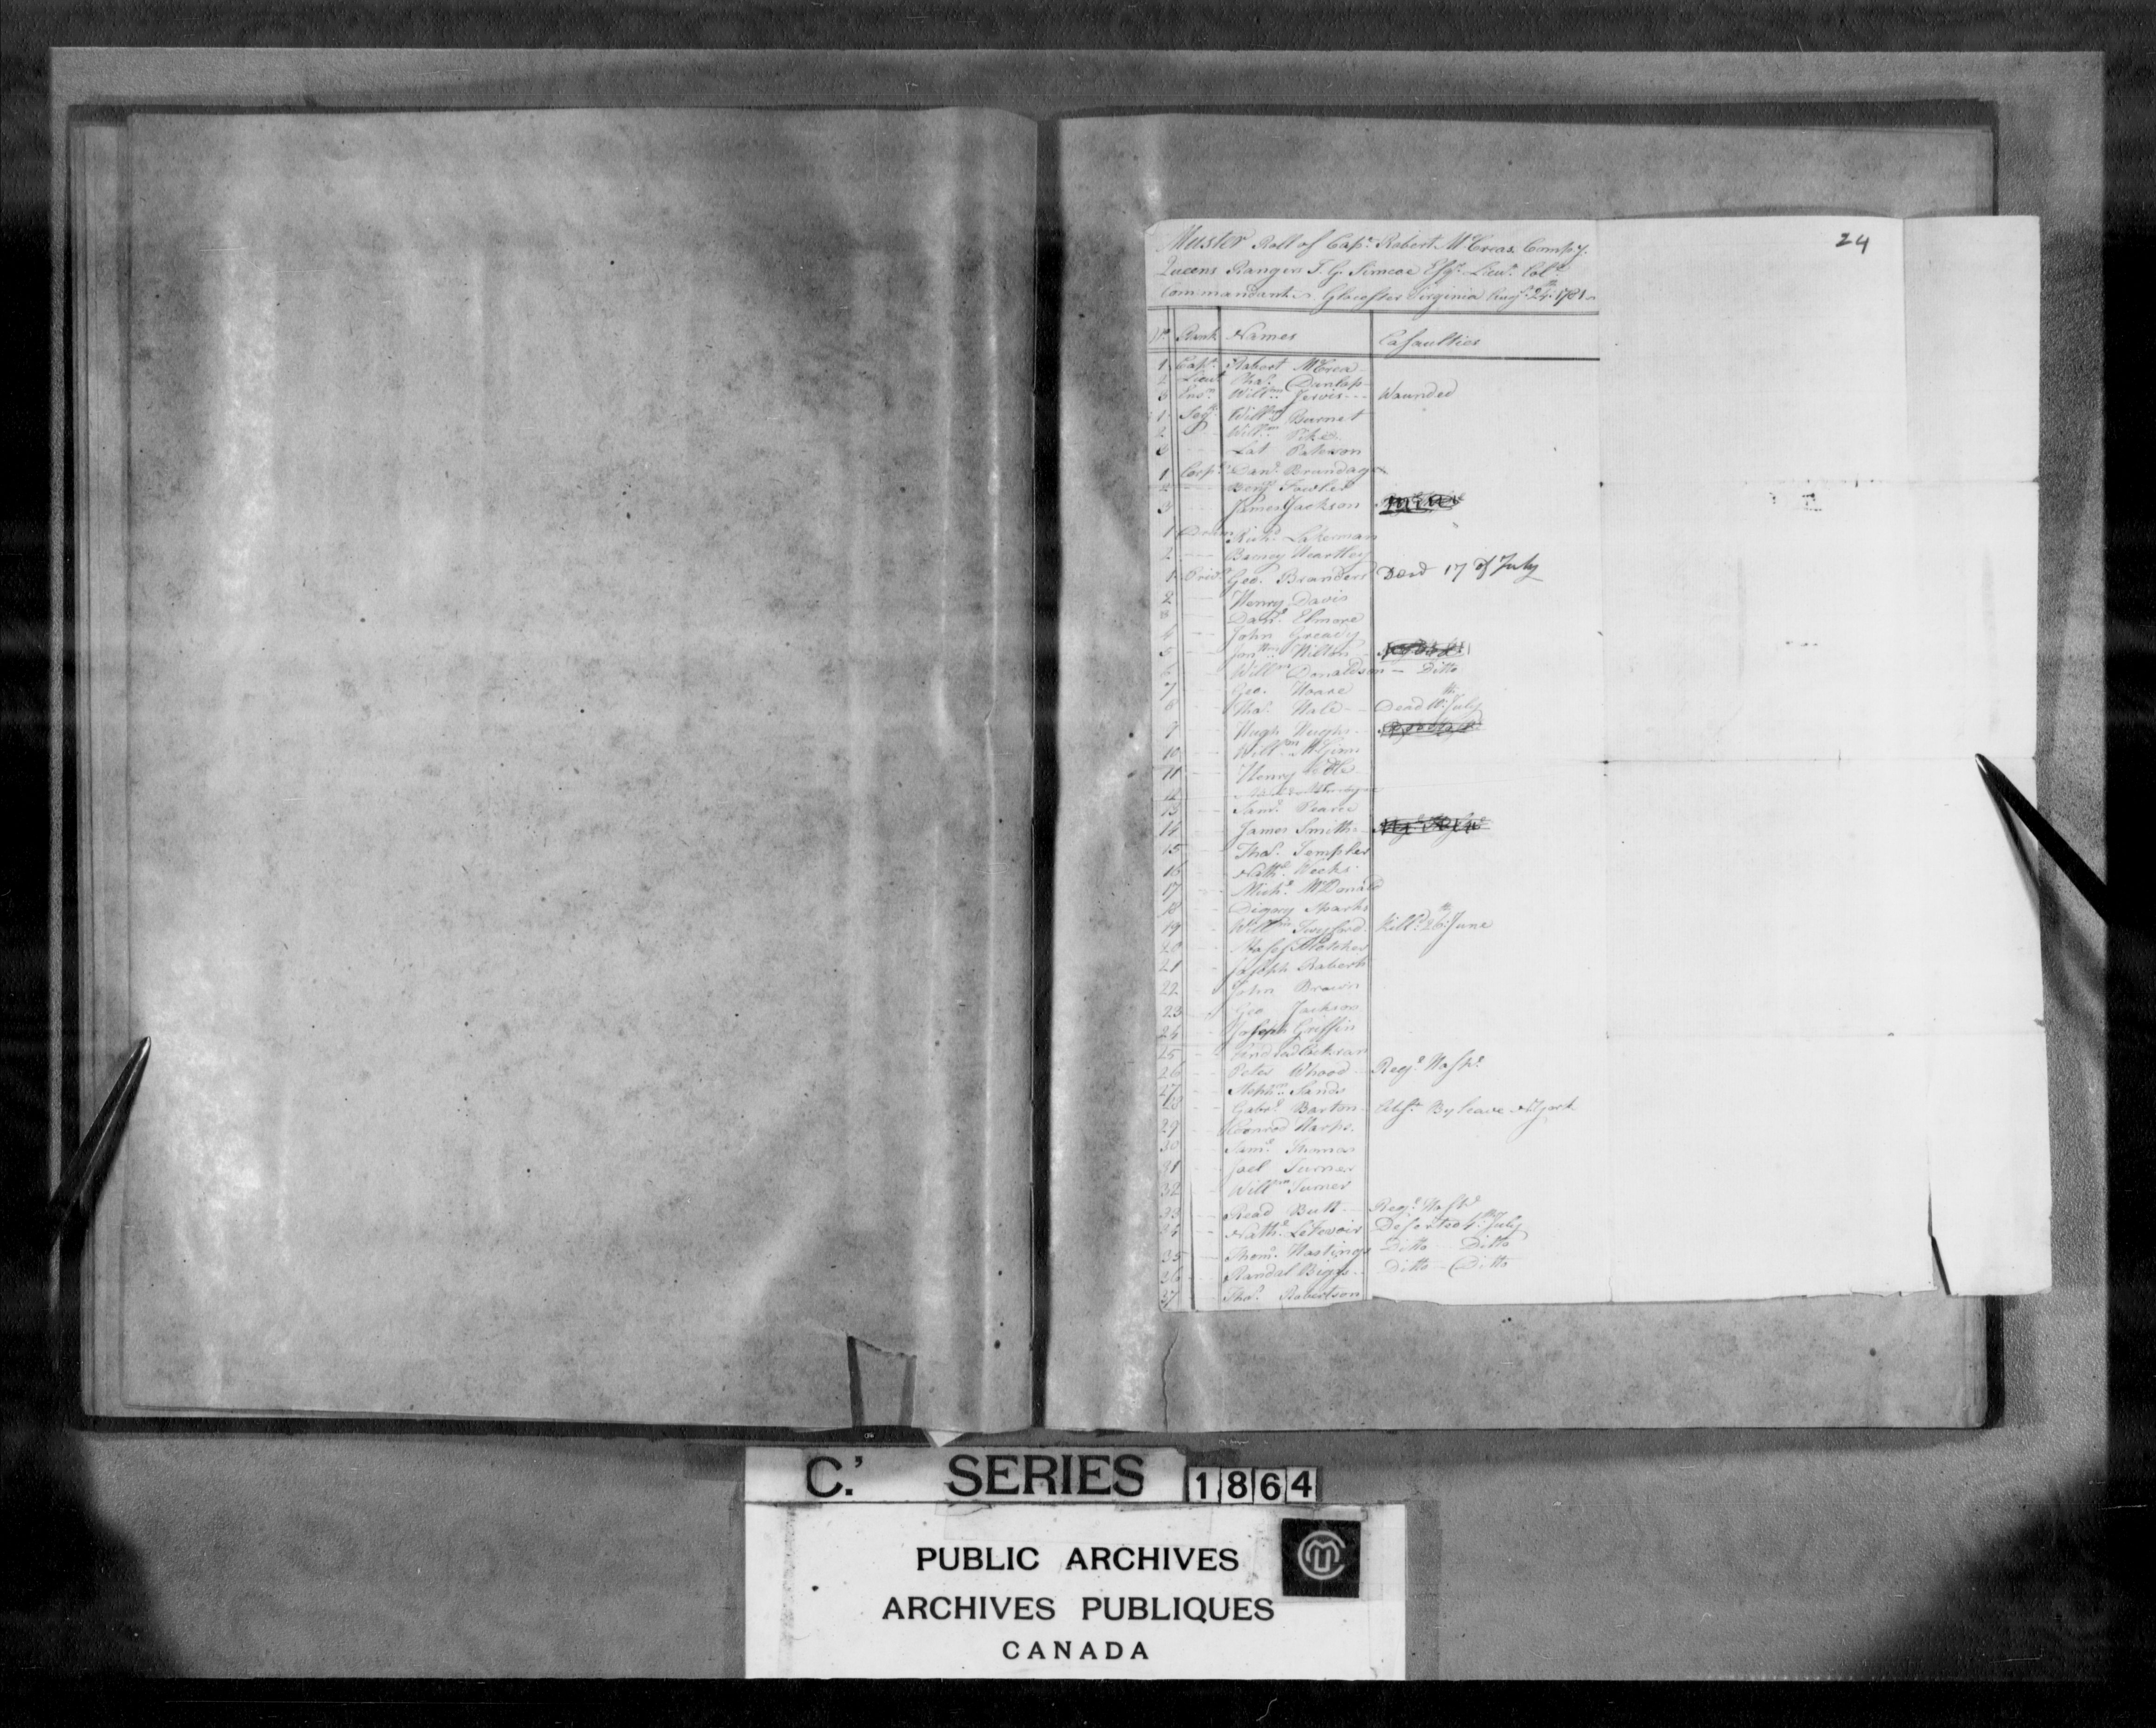 24
Muster Roll of Capt. Robert McCreas Compy.
Queens Rangers J. G. Simcoe Esqr. Lieut. Colo.
Commandant Glocester Virginia Augt. 24th 1781
No. Rank Names Casaulties
1 Capt. Robert McCrea
2 Lieut. Thos. Dunlop
3 Ens. Willm. Jervis Wounded
1 Sejt. Willm. Burnet
2 Willm. Pike
3 Lat Paterson
1 Corpl. Danl. Brundage
2 Benj. Fowler
3 James Jackson
1 Drum Richd. Lakeman
2 Barney Heartley
1 Privt. Geo. Branders Dead 17 of July
2 Henry Davis
3 Danl. Elmore
4 John Gready
5 Jonthn. Hilton
6 Willm. Donaldson Ditto
7 Geo. Hoare
8 Thos. Hale Dead 11th July
9 Hugh Hughs
10 Willm.
11 Henry
12
13 Saml. Pearce
14 James Smith
15 Thos. Templer
16 Nathl. Weeks
17 Michl. McDonald
18 Digory Sparks
19 Willm. Twyford Killd. 26th June
20 Fletcher
21 Joseph Roberts
22 John Brown
23 Geo Jackson
24 Joseph Griffin
25 Cockran
26 Peter Whood Regl. Hospl.
27 Stephn. Sands
28 Gabrl. Barton Abst. By leave N York
29 Conrod Harps
30 Saml. Thomas
31 Joel Turner
32 Willm. Turner
33 Read Butt Regl. Hospl.
34 Nathl. Deserted 4th July
35 Thoms. Hastings Ditto Ditto
36 Randal Biggs Ditto Ditto
37 Thos. Robertson
C.' SERIES 1864
PUBLIC ARCHIVES
ARCHIVES PUBLIQUES
CANADA